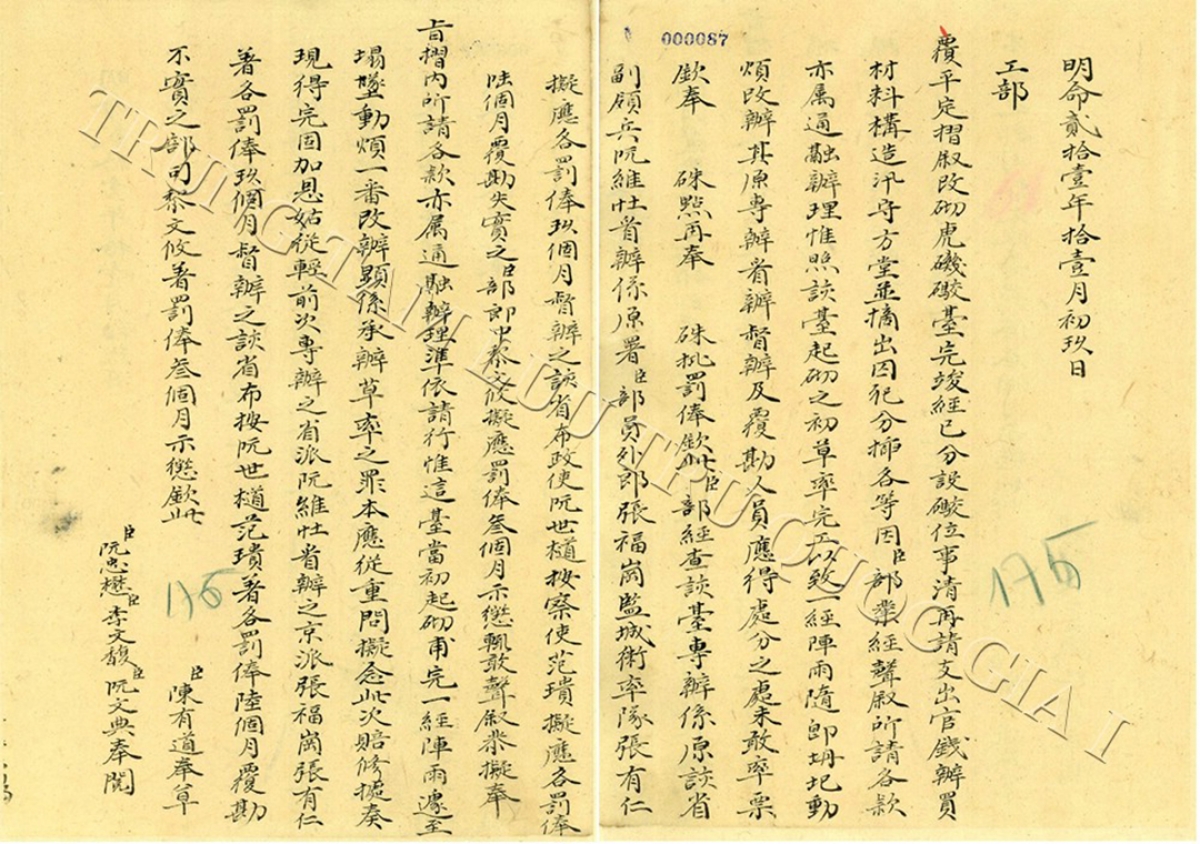 000087
明命貳拾壹年拾壹月初玖日
工部
覆平定摺敘改砌虎磯礮臺完竣經已分設礮位事清再請支出官錢辦買
材料構造汛守方堂並摘出因死分插各等因臣部業經聲敘所請各款
亦属通融辦理惟照該臺起砌之初草率完工以致一經陣雨隨即坍圮動
煩改辦其原專辦省辦督辦及覆勘人員應得處分之處未敢率票
欽奉 硃點再奉 硃批罰俸欽此臣部經查該臺專辦係原該省
副領兵阮維壯省辦係原署臣部員外郎張福崗監城衛率隊張有仁
擬應各罰俸玖個月督辦之該省布政使阮世樋按察使范璝擬應各罰俸
陸個月覆勘失實之臣部郎中黎文攸擬應罰俸叁個月示懲輒敢聲叙恭擬奉
旨摺內所請各款亦属通融辦理準依請行惟這臺當初起砌甫完一經陣雨遽至
塌墜動煩一番改辦顯係承辦草率之罪本應從重問擬念此次賠修據奏
現得完固加恩姑從輕前次專辦之省派阮維壯省辦之京派張福崗張有仁
著各罰俸玖個月督辦之該省布按阮世樋范璝著各罰俸陸個月覆勘
不實之部司黎文攸著罰俸叁個月示懲欽此
臣陳有道奉草
臣阮忠懋臣李文馥臣阮文典奉閱
175
175
TRUNG TÂM LƯU TRỮ QUỐC GIA I